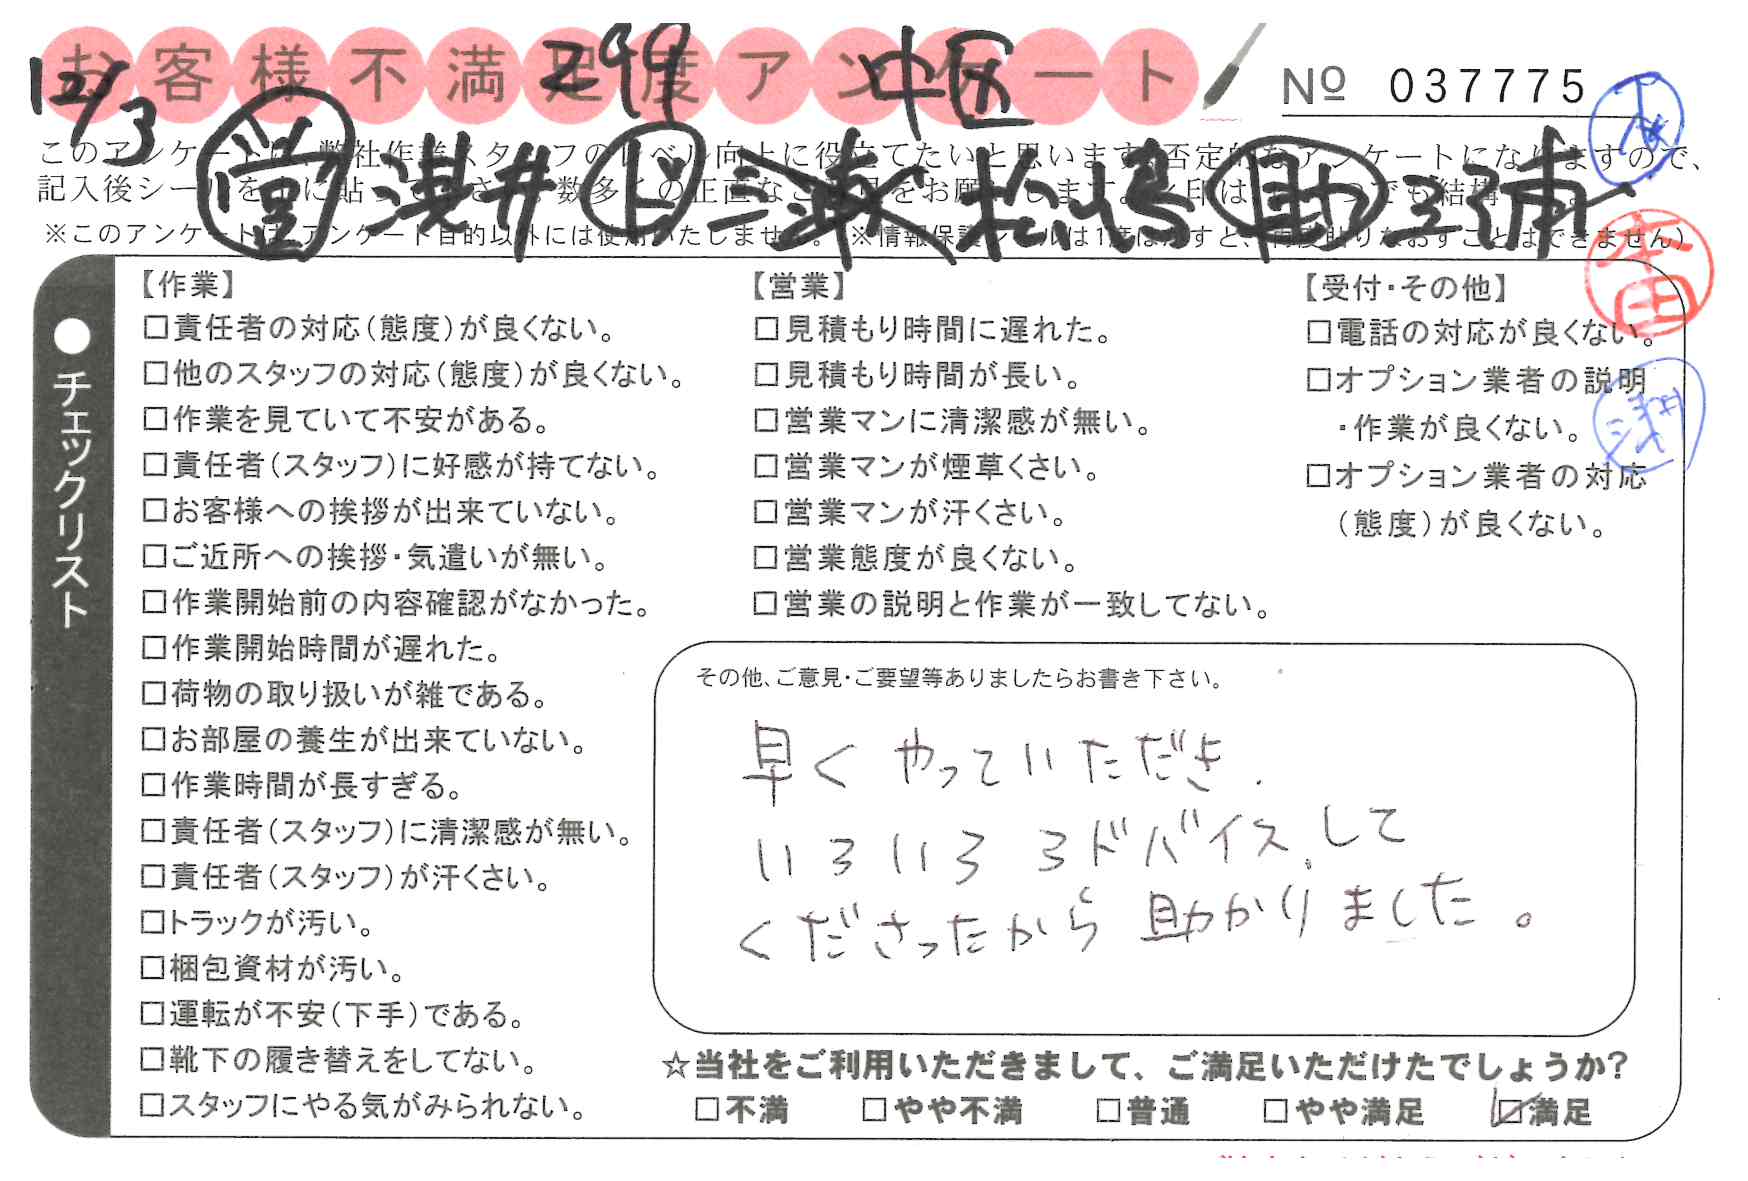 お客様不満足度アンケート
299
中区
№ 037775
12/3
営 浅井 ド 松嶋 助 三浦
このアンケートは、弊社作業スタッフのレベル向上に役立てたいと思います。否定的なアンケートになりますので、
※このアンケートは、アンケート目的以外には使用いたしません。(※情報保護シールは1度はがすと、再度貼りなおすことはできません)
本田
浅井
●チェックリスト
【作業】
□責任者の対応(態度)が良くない。
□他のスタッフの対応(態度)が良くない。
□作業を見ていて不安がある。
□責任者(スタッフ)に好感が持てない。
□お客様への挨拶が出来ていない。
□ご近所への挨拶・気遣いが無い。
□作業開始前の内容確認がなかった。
□作業開始時間が遅れた。
□荷物の取り扱いが雑である。
□お部屋の養生が出来ていない。
□作業時間が長すぎる。
□責任者(スタッフ)に清潔感が無い。
□責任者(スタッフ)が汗くさい。
□トラックが汚い。
□梱包資材が汚い。
□運転が不安(下手)である。
□靴下の履き替えをしてない。
□スタッフにやる気がみられない。
【営業】
□見積もり時間に遅れた。
□見積もり時間が長い。
□営業マンに清潔感が無い。
□営業マンが煙草くさい。
□営業マンが汗くさい。
□営業態度が良くない。
□営業の説明と作業が一致してない。
【受付・その他】
□電話の対応が良くない。
□オプション業者の説明
・作業が良くない。
□オプション業者の対応
(態度)が良くない。
その他、ご意見・ご要望等ありましたらお書き下さい。
早くやっていただき、
いろいろアドバイスして
くださったから助かりました。
☆当社をご利用いただきまして、ご満足いただけたでしょうか?
□不満 □やや不満 □普通 □やや満足 ☑満足